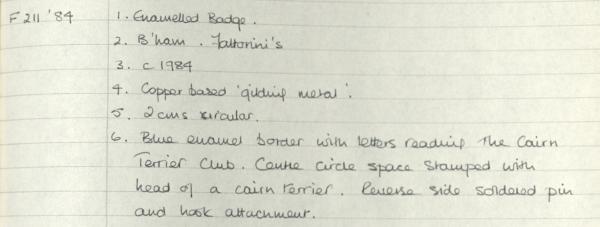 F 211 '84 1. Enamelled Badge.
2. B'ham. Fattorini's
3. c 1984
4. Copper based 'gilding metal'.
5. 2 cms circular.
6. Blue enamel border with letters reading The Cairn
Terrier Club. Centre circle space stamped with
head of a cairn terrier. Reverse side soldered pin
and hook attachment.